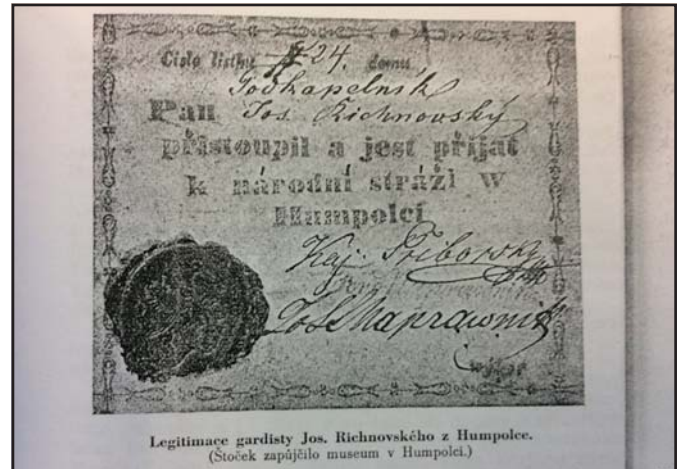 Číslo lístku 24. domu
Podkapelník
Pan Jos. Richnovský
přistoupil a jest přijat
k národní stráži w
Humpolci
Kaj. Přiborsky
Jos. Naprawnik
Legitimace gardisty Jos. Richnovského z Humpolce.
(Štoček zapůjčilo museum v Humpolci.)